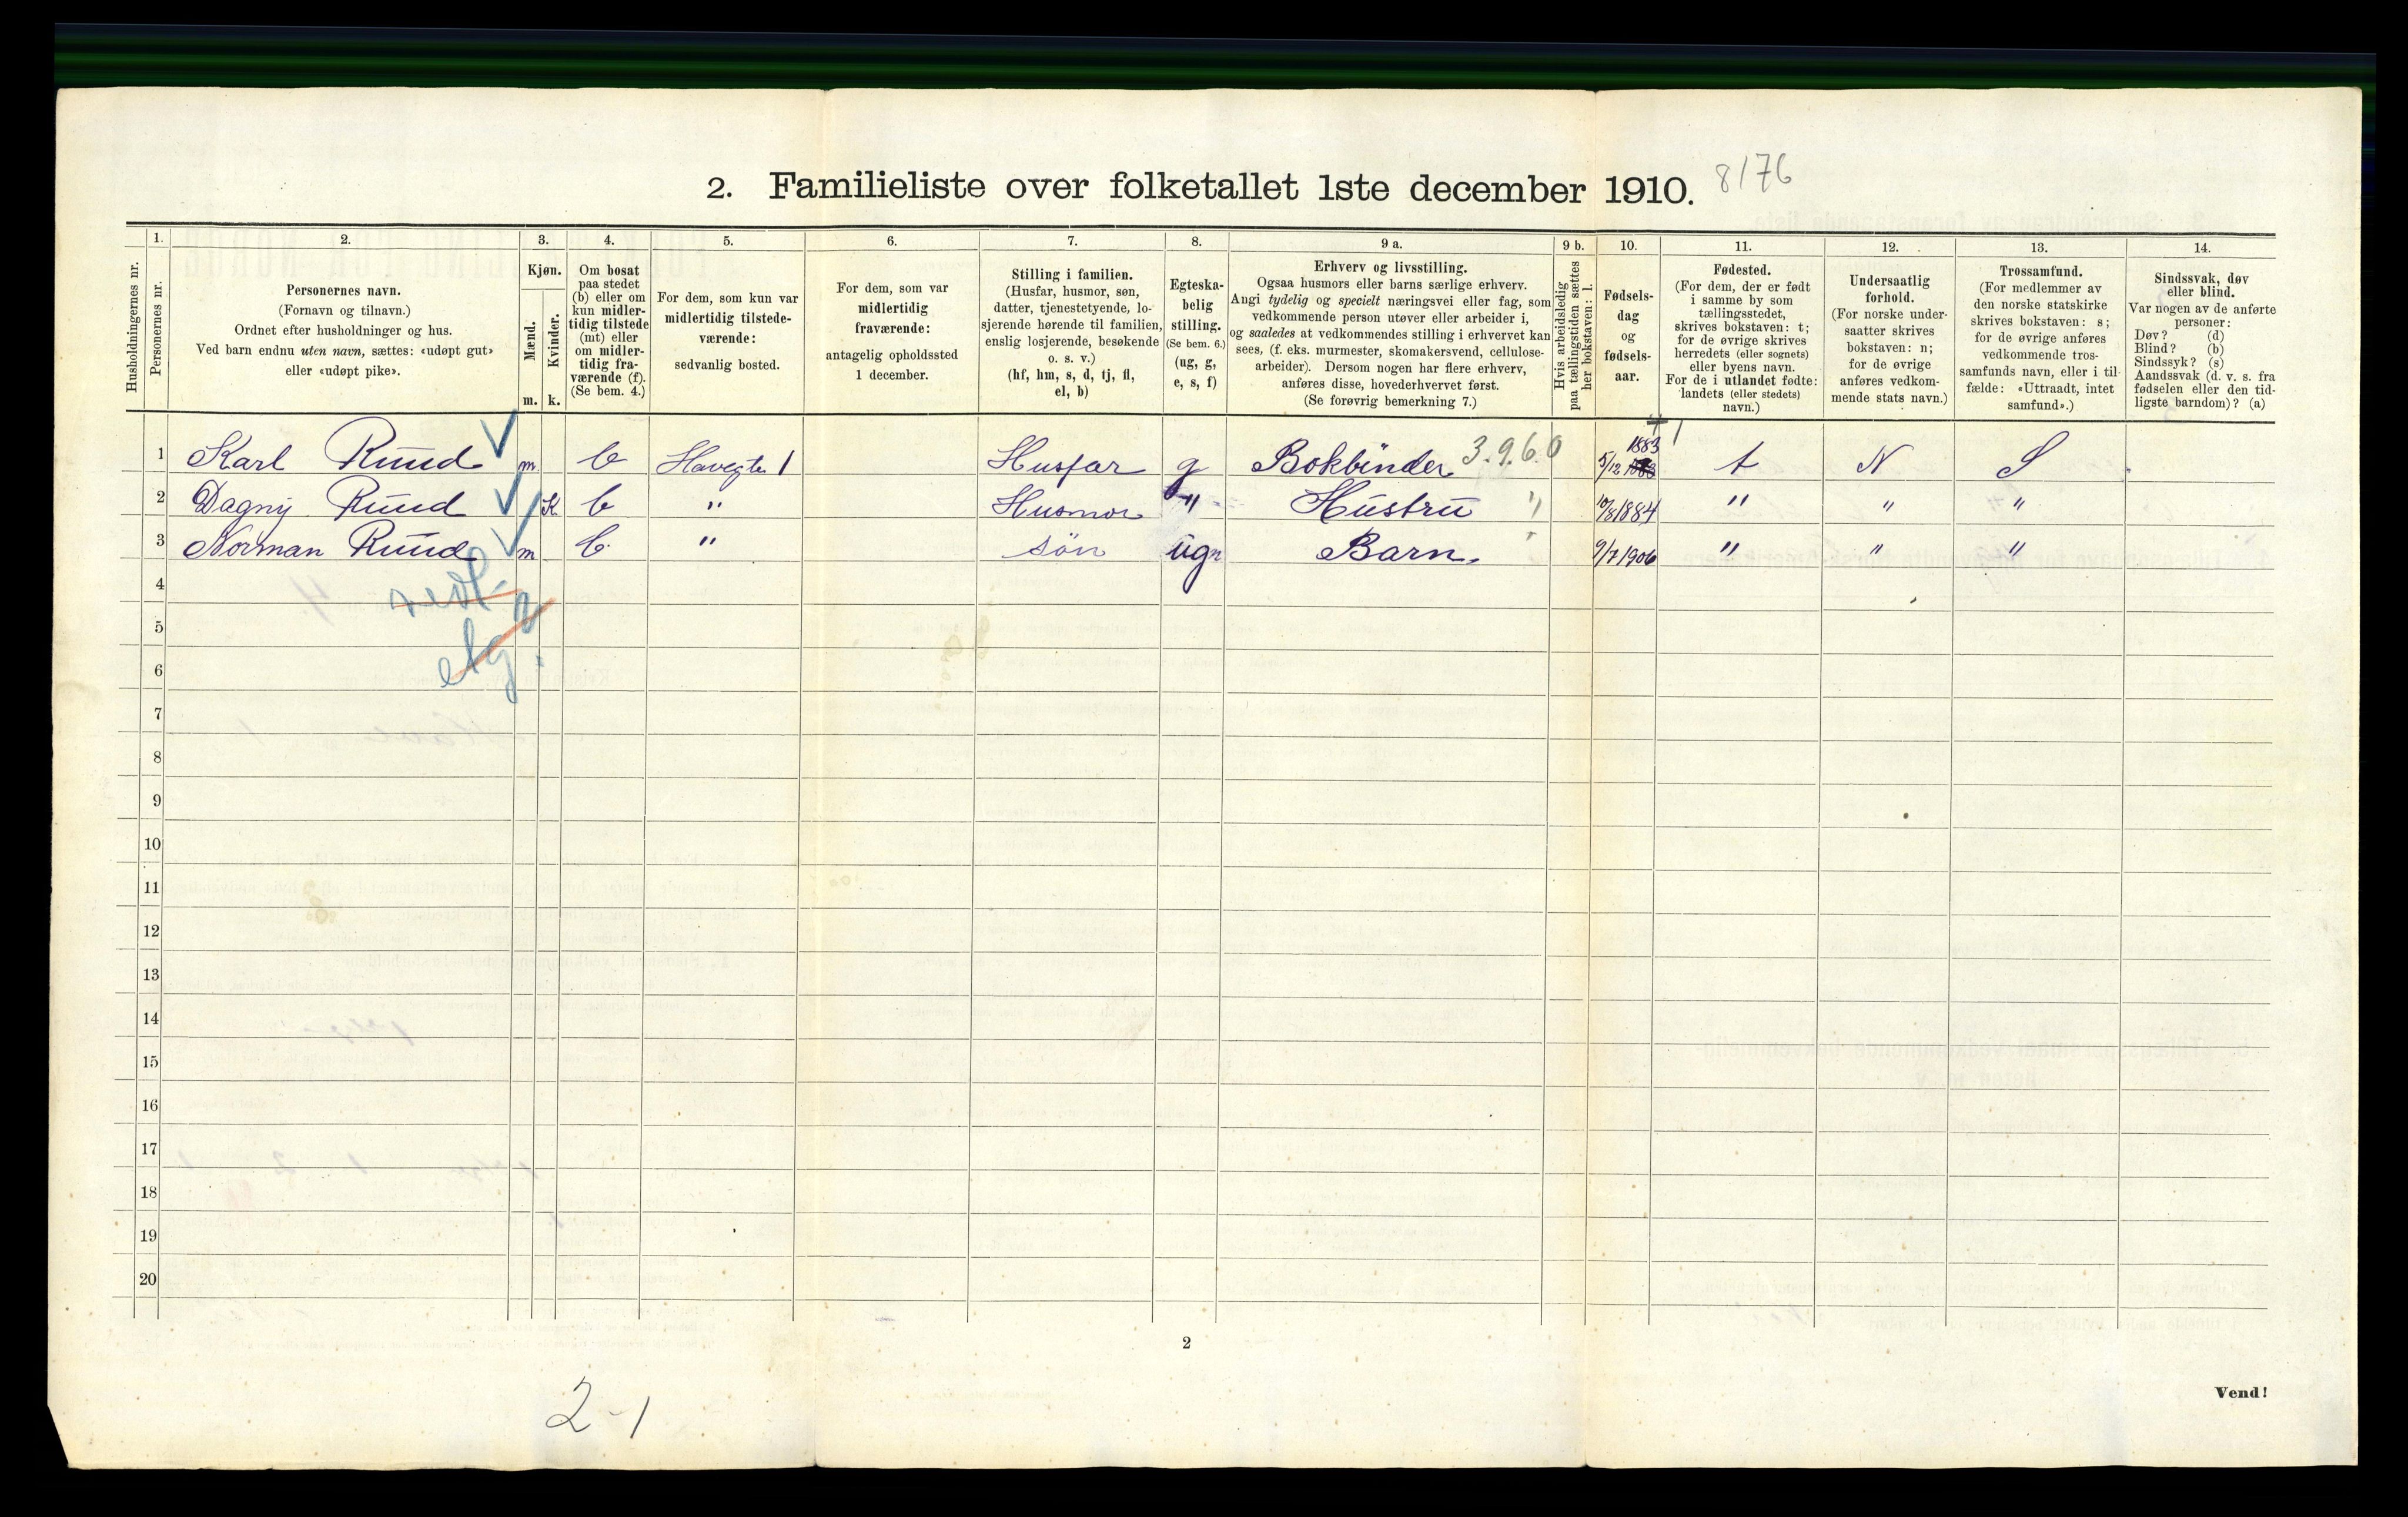 2. Familieliste over folketallet 1ste december 1910. 8176
Husholdningernes nr.
1.
Personernes nr.
2.
Personernes navn.
(Fornavn og tilnavn.)
Ordnet efter husholdninger og hus.
Ved barn endnu uten navn, sættes: «udøpt gut»
eller «udøpt pike».
3.
Kjøn.
Mænd.
Kvinder.
m. k.
4.
Om bosat
paa stedet
(b) eller om
kun midler-
tidig tilstede
(mt) eller
om midler-
tidig fra-
værende (f).
(Se bem. 4.)
5.
For dem, som kun var
midlertidig tilstede-
værende:
sedvanlig bosted.
6.
For dem, som var
midlertidig
fraværende:
antagelig opholdssted
1 december.
7.
Stilling i familien.
(Husfar, husmor, søn,
datter, tjenestetyende, lo-
sjerende hørende til familien,
enslig losjerende, besøkende
o. s. v.)
(hf, hm, s, d, tj, fl,
el, b)
8.
Egteska-
belig
stilling.
(Se bem. 6.)
(ug, g,
e, s, f)
9 a.
Erhverv og livsstilling.
Ogsaa husmors eller barns særlige erhverv.
Angi tydelig og specielt næringsvei eller fag, som
vedkommende person utøver eller arbeider i,
og saaledes at vedkommendes stilling i erhvervet kan
sees, (f. eks. murmester, skomakersvend, cellulose-
arbeider). Dersom nogen har flere erhverv,
anføres disse, hovederhvervet først.
(Se forøvrig bemerkning 7.)
9 b.
Hvis arbeidsledig
paa tællingstiden sættes
her bokstaven: l.
10.
Fødsels-
dag
og
fødsels-
aar.
11.
Fødested.
(For dem, der er født
i samme by som
tællingsstedet,
skrives bokstaven: t;
for de øvrige skrives
herredets (eller sognets)
eller byens navn.
For de i utlandet fødte:
landets (eller stedets)
navn.)
12.
Undersaatlig
forhold.
(For norske under-
saatter skrives
bokstaven: n;
for de øvrige
anføres vedkom-
mende stats navn.)
13.
Trossamfund.
(For medlemmer av
den norske statskirke
skrives bokstaven: s;
for de øvrige anføres
vedkommende tros-
samfunds navn, eller i til-
fælde: «Uttraadt, intet
samfund».)
14.
Sindssvak, døv
eller blind.
Var nogen av de anførte
personer:
Døv? (d)
Blind? (b)
Sindssyk? (s)
Aandssvak (d. v. s. fra
fødselen eller den tid-
ligste barndom)? (a)
1 Karl Ruud m b Havegten 1 Husfar g Bokbinder 3.9.6.0 5/12 1883 t N S
2 Dagny Ruud K b " Husmor " Hustru " 10/8 1884 " " "
3 Norman Ruud m b. " søn ug Barn. 9/7 1906 " " "
4
5
6
7
8
9
10
11
12
13
14
15
16
17
18
19
20
2
Vend!
2-1